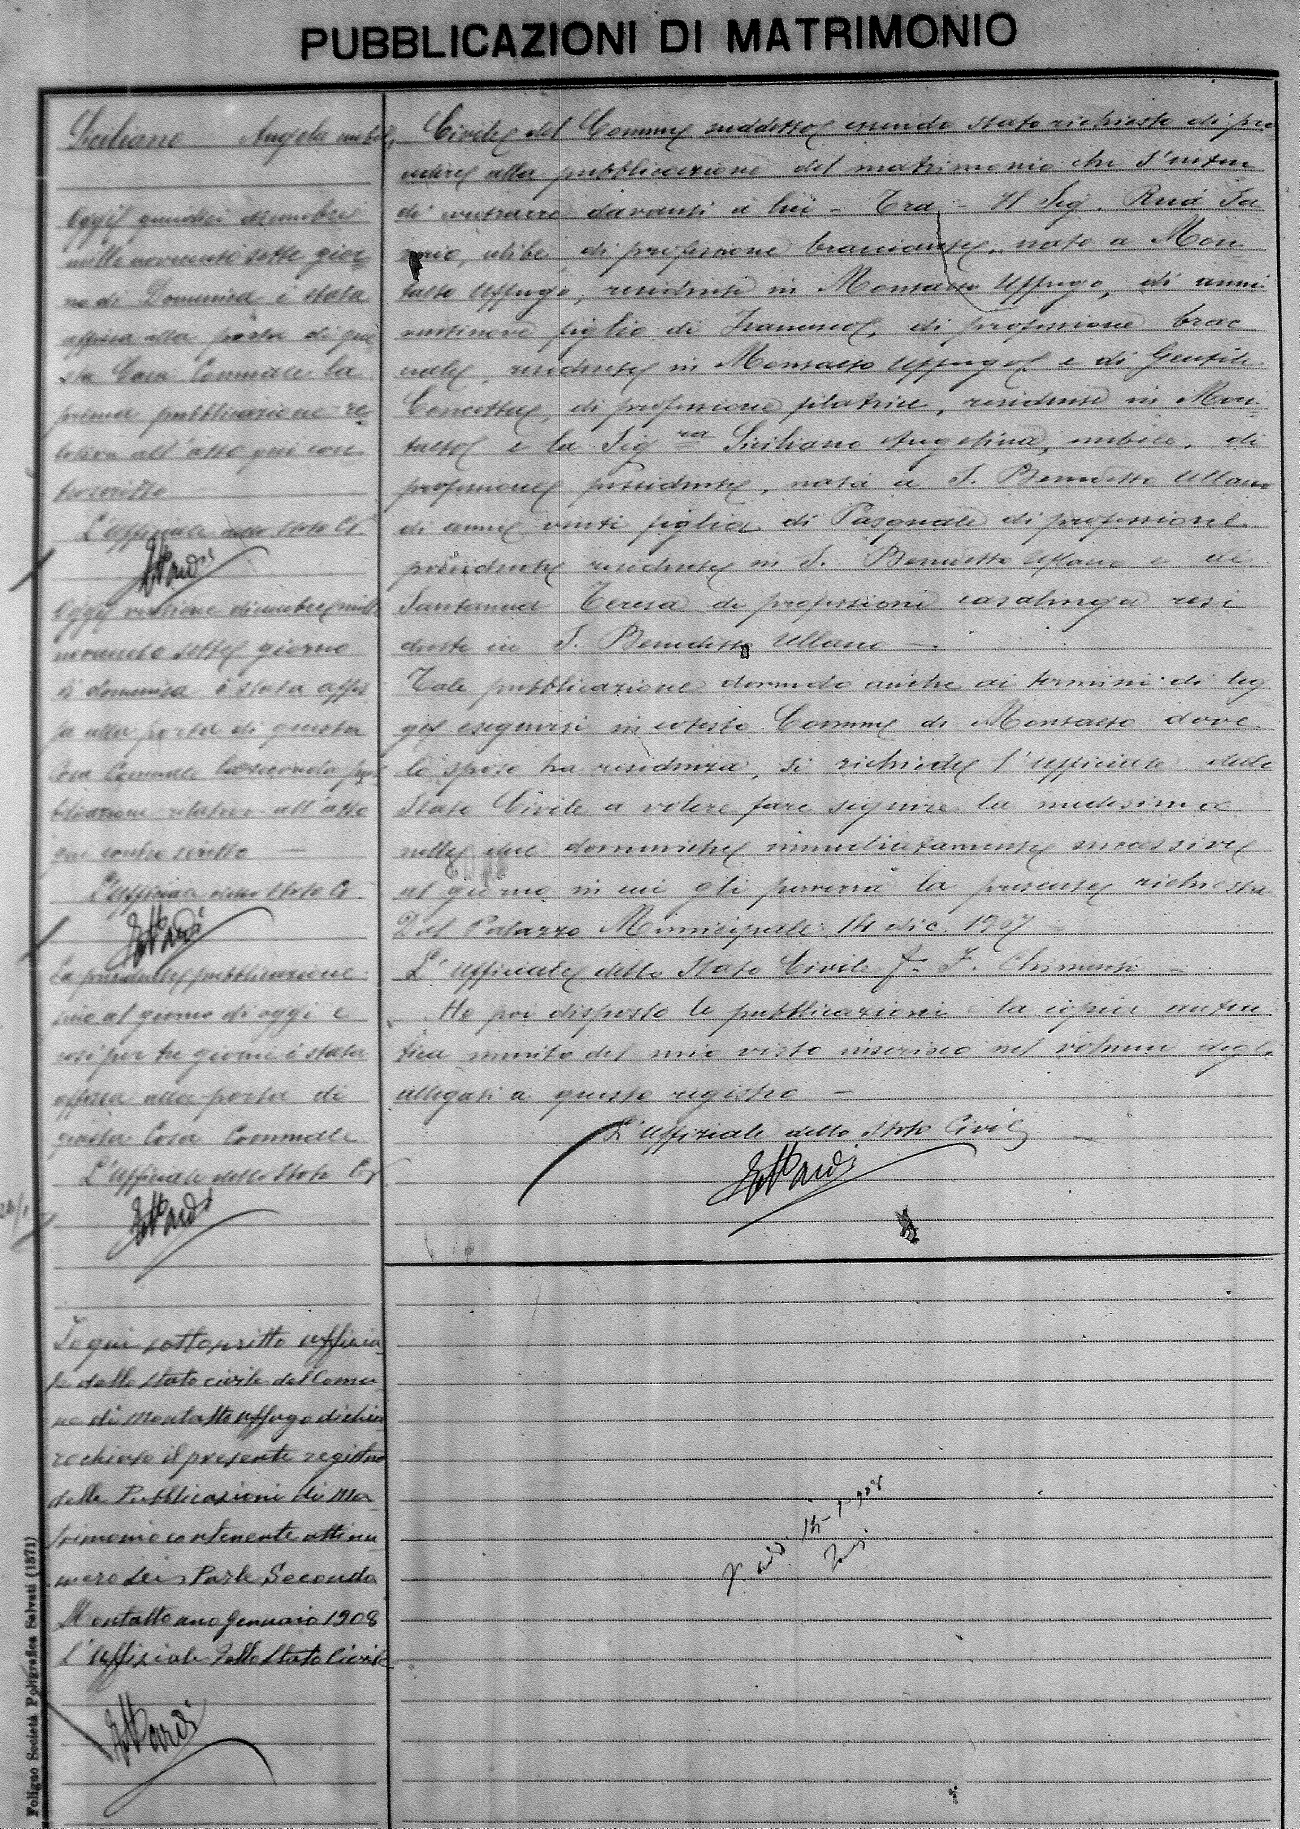 PUBBLICAZIONI DI MATRIMONIO
Siciliano Angela nubile
Oggi quindici dicembre
mille novecento sette gior
no di Domenica è stata
affissa alla porta di que
sta Casa Comunale la
prima pubblicazione re
lativa all'atto qui con
troscritto
L'Ufficiale dello Stato Ci
Oggi ventidue dicembre mille
novecento sette giorno
di domenica è stata affis
sa alla porta di questa
Casa Comunale la seconda pub
blicazione relativa all'atto
qui contro scritto —
L'Ufficiale dello Stato Ci
La presente pubblicazione
sino al giorno di oggi e
così per tre giorni è stata
affissa alla porta di
questa Casa Comunale
L'Ufficiale dello Stato Ci
Io qui sottoscritto Uffizia
le dello stato civile del Comu
ne di Montalto Uffugo dichia
ro chiuso il presente registro
delle Pubblicazioni di Ma
trimonio contenente atti nu
mero sei Parte Seconda
Montalto uno Gennaio 1908
L'Uffiziale dello Stato Civile
Civile del Comune suddetto essendo stato richiesto di pro
cedere alla pubblicazione del matrimonio che s'inten
di contrarre davanti a lui - Tra - Il Sig. Ruà
celibe, di professione bracciante, nato a Mon
talto Uffugo, residente in Montalto Uffugo, di anni
ventinove figlio di Francesco, di professione brac
ciale, residente in Montalto Uffugo e di Gentile
Concetta, di professione filatrice, residente in Mon
talto e la Sigra Siciliano Angelina, nubile, di
professione possidente, nata a S. Benedetto Ullano
di anni venti figlia di Pasquale di professione
possidente residente in S. Benedetto Ullano e di
Santanna Teresa di professione casalinga resi
dente in S. Benedetto Ullano —.
Tale pubblicazione dovendo anche ai termini di leg
ge eseguirsi in cotesto Comune di Montalto dove
lo sposo ha residenza, si richiede l'Ufficiale dello
Stato Civile a volere fare seguire la medesima
nelle due domeniche immediatamente successive
al giorno in cui gli perverrà la presente richiesta
Dal Palazzo Municipale 14 dic. 1907
L'Ufficiale dello Stato Civile F. F. Chimenti —
Ho poi disposto le pubblicazioni e la copia auten
tica munita del mio visto inserisco nel volume degli
allegati a questo registro —
L'Uffiziale dello Stato Civile
Foligno Società Poligrafica Salvati (1871)